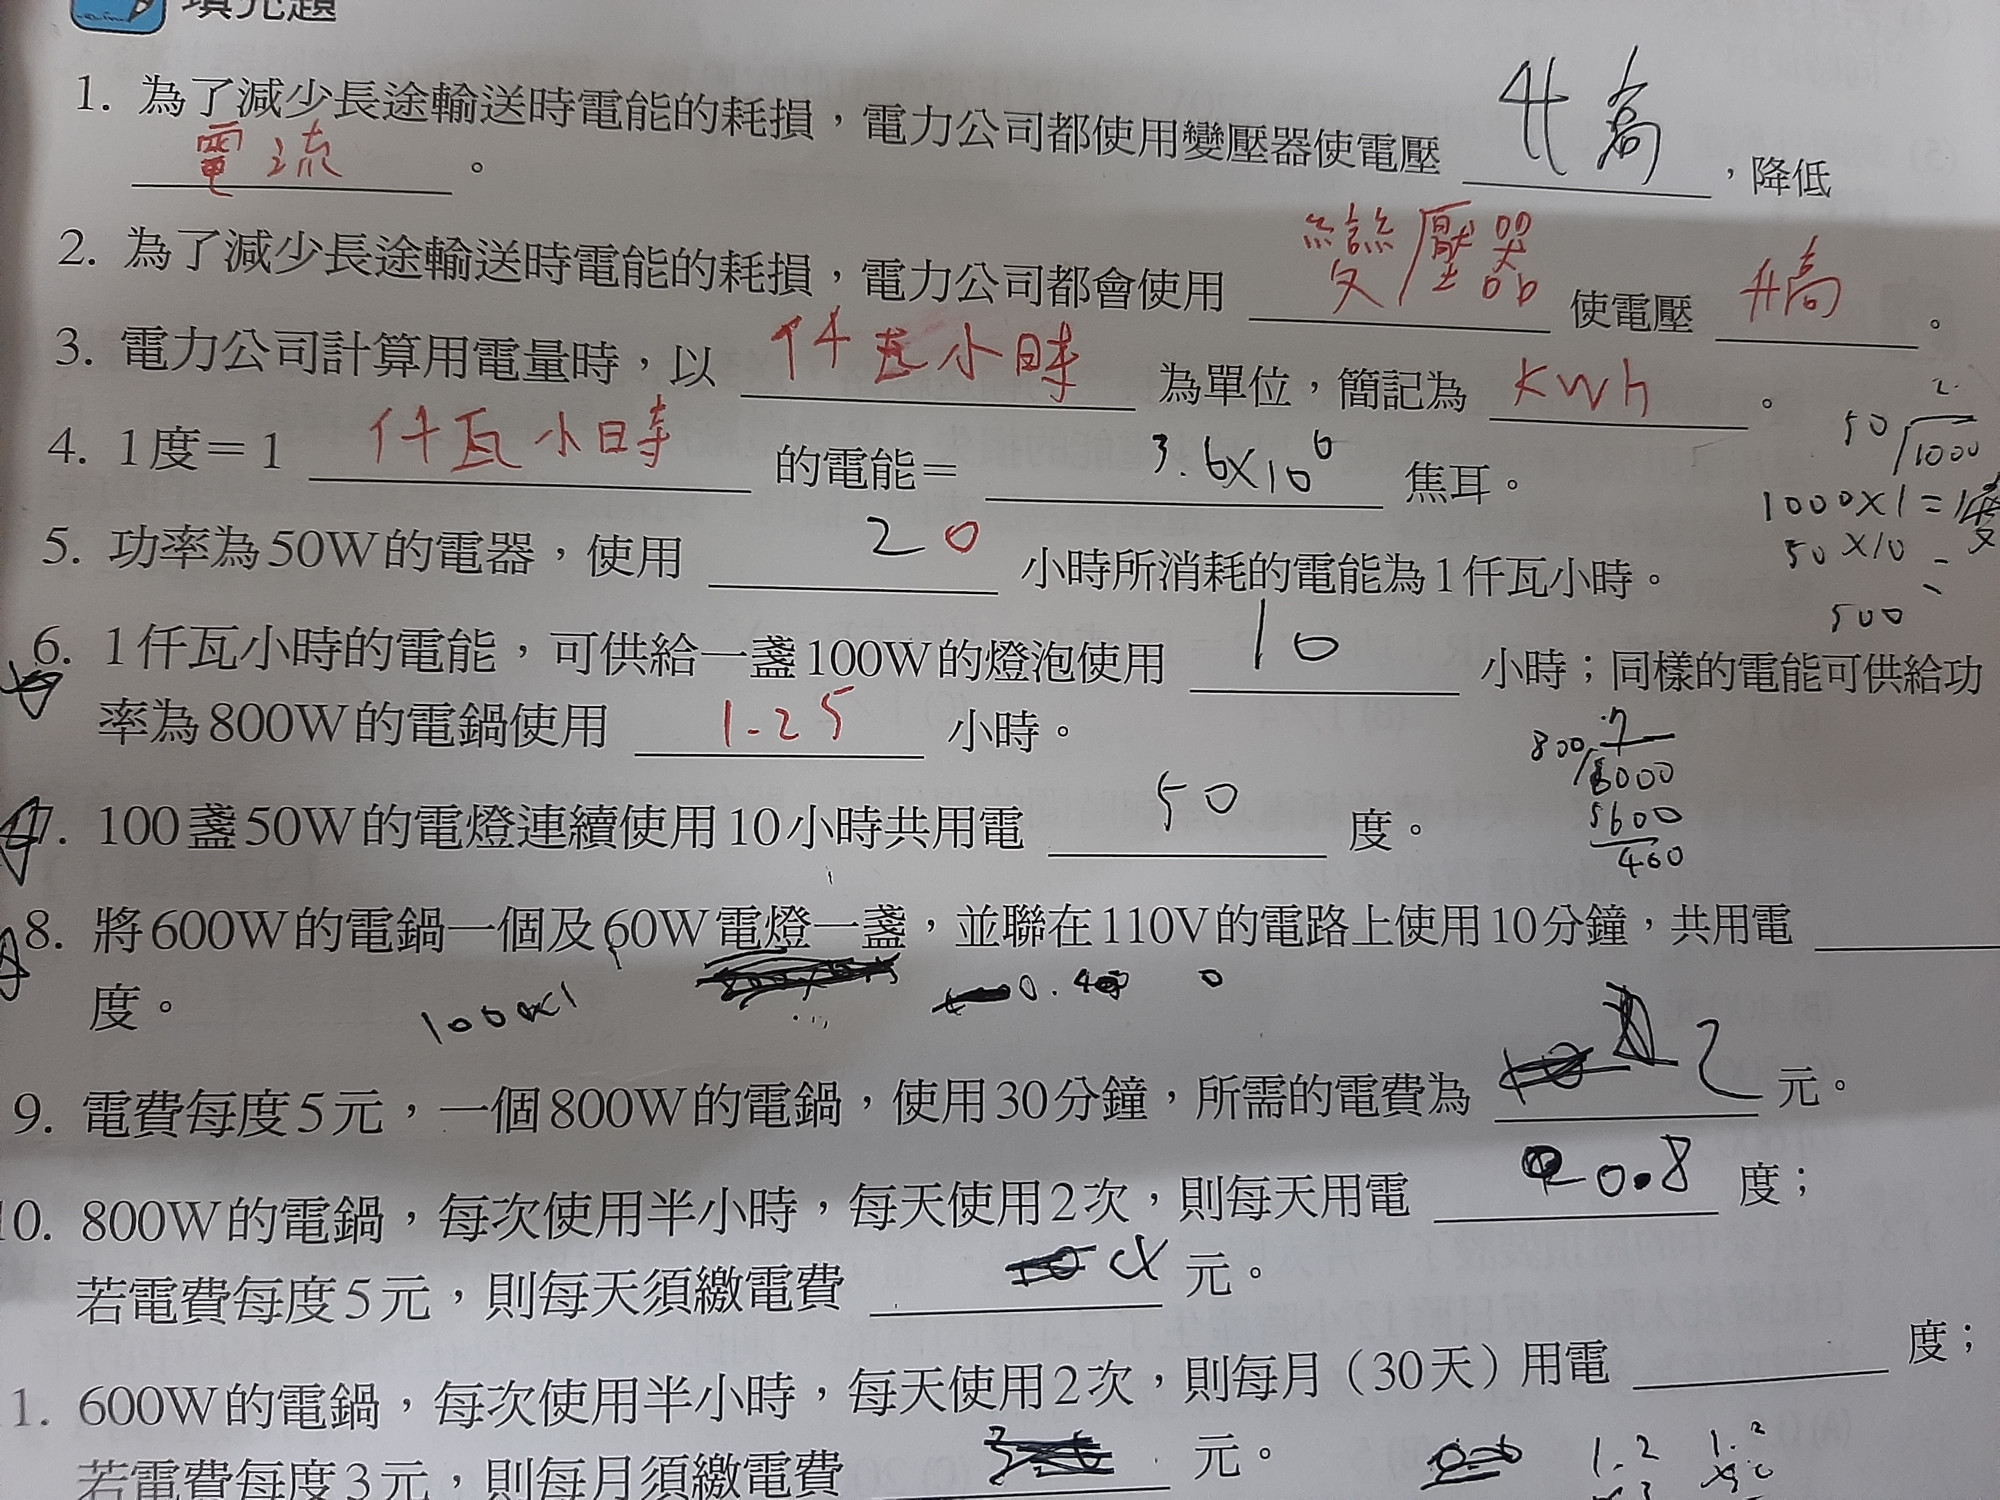 填充題
1. 為了減少長途輸送時電能的耗損，電力公司都使用變壓器使電壓 升高 ，降低
電流 。
2. 為了減少長途輸送時電能的耗損，電力公司都會使用 變壓器 使電壓 升高 。
3. 電力公司計算用電量時，以 仟瓦小時 為單位，簡記為 KWh 。
4. 1度＝1 仟瓦小時 的電能＝ 3.6×10⁶ 焦耳。
50 1000
1000×1=1度
5. 功率為50W的電器，使用 20 小時所消耗的電能為1仟瓦小時。
50×10=
500
6. 1仟瓦小時的電能，可供給一盞100W的燈泡使用 10 小時；同樣的電能可供給功
率為800W的電鍋使用 1.25 小時。
800 .7
5600
400
7. 100盞50W的電燈連續使用10小時共用電 50 度。
8. 將600W的電鍋一個及60W電燈一盞，並聯在110V的電路上使用10分鐘，共用電
度。
9. 電費每度5元，一個800W的電鍋，使用30分鐘，所需的電費為 2 元。
10. 800W的電鍋，每次使用半小時，每天使用2次，則每天用電 0.8 度；
若電費每度5元，則每天須繳電費 4 元。
1. 600W的電鍋，每次使用半小時，每天使用2次，則每月（30天）用電 度；
若電費每度3元，則每月須繳電費 元。
1.2 1.2